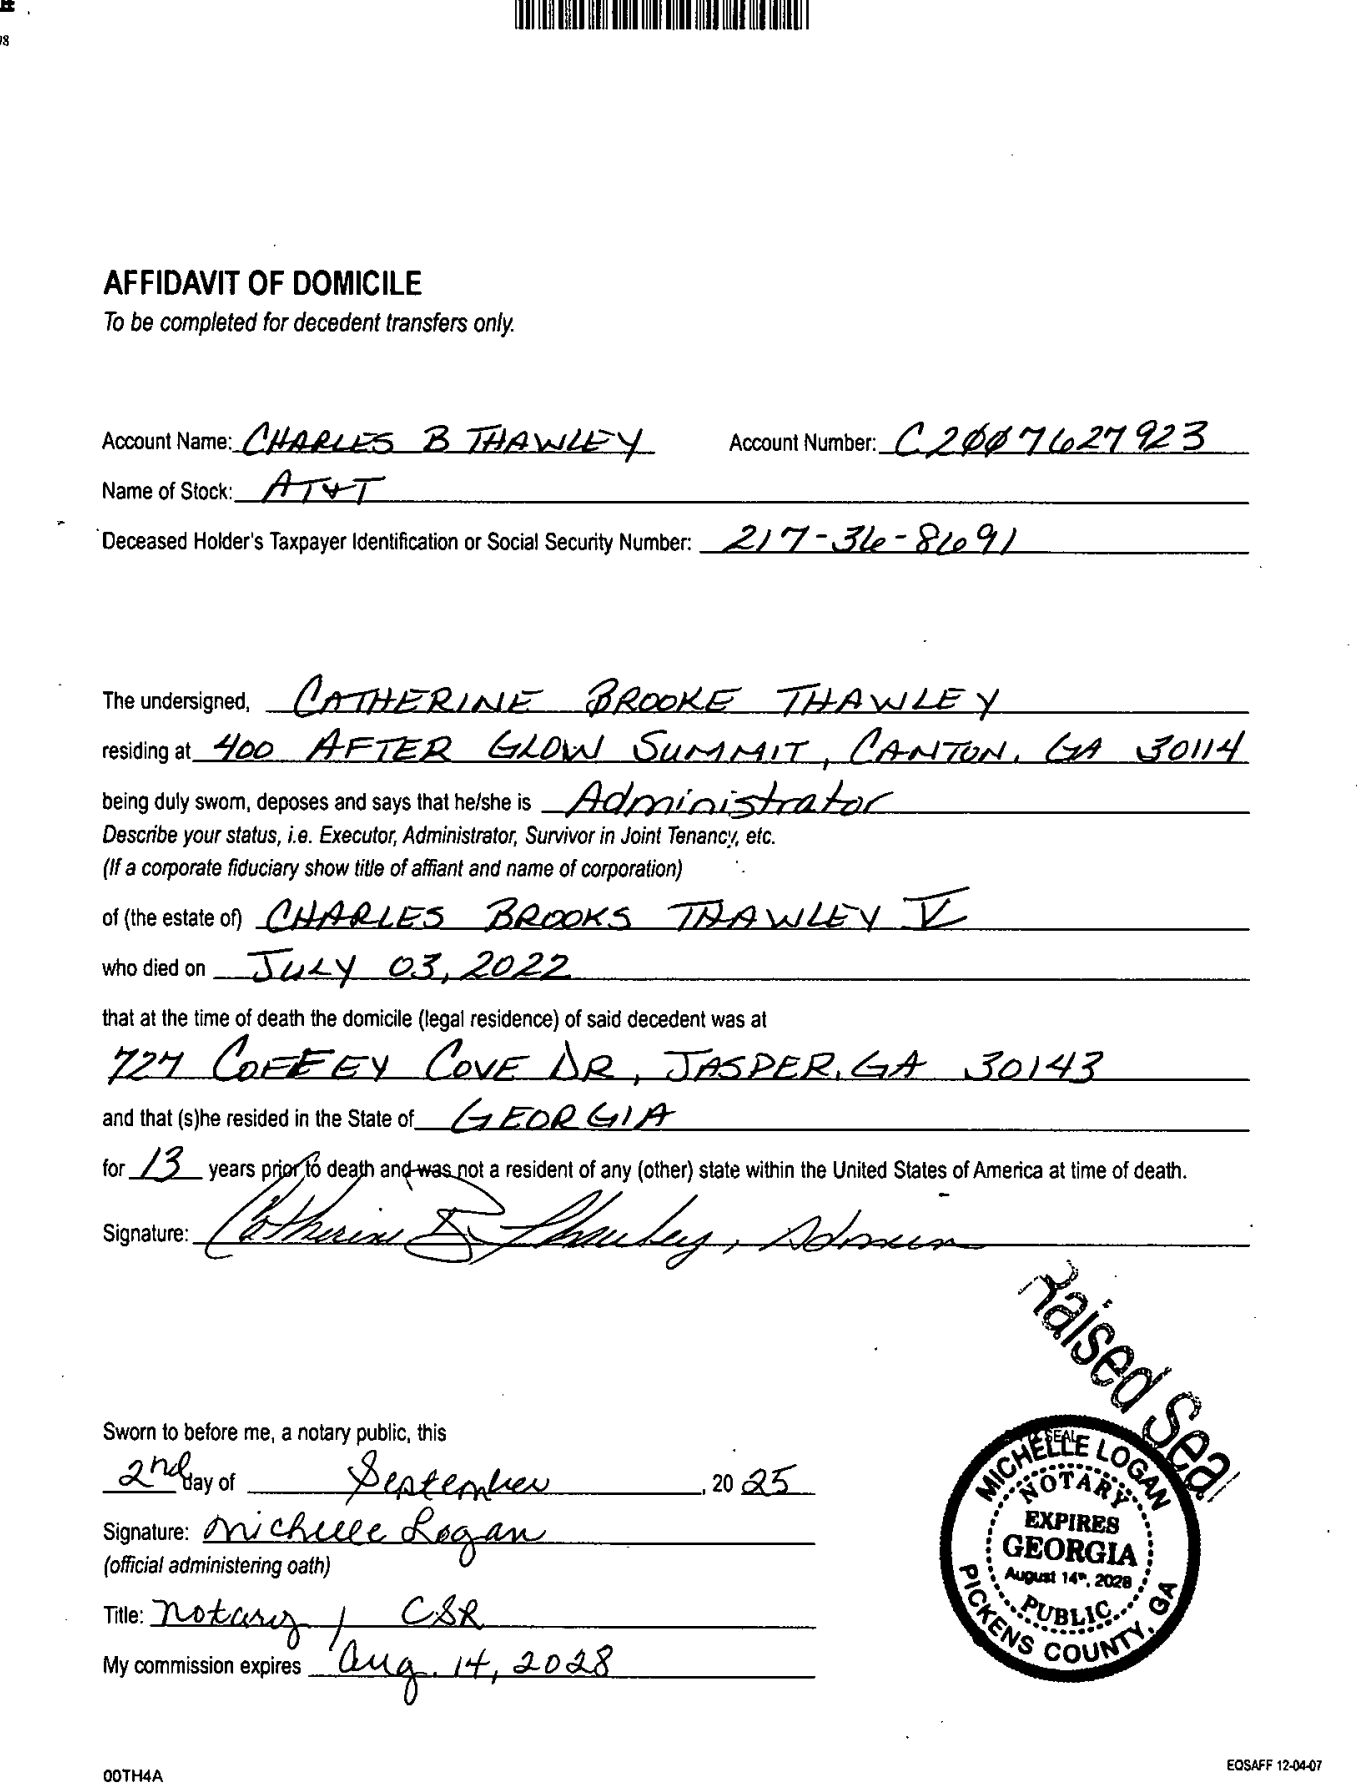 AFFIDAVIT OF DOMICILE
To be completed for decedent transfers only.
Account Name: CHARLES B THAWLEY Account Number: C2007627923
Name of Stock: AT&T
Deceased Holder's Taxpayer Identification or Social Security Number: 217-36-8691
The undersigned, CATHERINE BROOKE THAWLEY
residing at 400 AFTER GLOW SUMMIT, CANTON, GA 30114
being duly sworn, deposes and says that he/she is Administrator
Describe your status, i.e. Executor, Administrator, Survivor in Joint Tenancy, etc.
(If a corporate fiduciary show title of affiant and name of corporation)
of (the estate of) CHARLES BROOKS THAWLEY V
who died on JULY 03, 2022
that at the time of death the domicile (legal residence) of said decedent was at
727 COFFEY COVE DR, JASPER, GA 30143
and that (s)he resided in the State of GEORGIA
for 13 years prior to death and was not a resident of any (other) state within the United States of America at time of death.
Signature: Catherine B Thawley, Admin
Raised Seal
Sworn to before me, a notary public, this
2nd day of September, 2025
Signature: Michelle Logan
(official administering oath)
Title: Notary / CSR
My commission expires Aug. 14, 2028
SEAL
MICHELLE LOGAN
NOTARY
EXPIRES
GEORGIA
August 14th, 2028
PUBLIC
PICKENS COUNTY, GA
00TH4A
EQSAFF 12-04-07